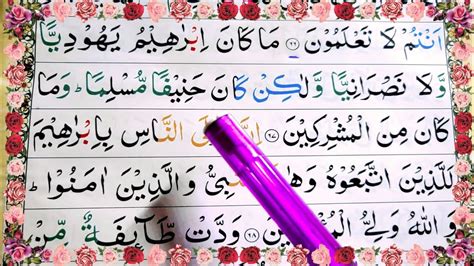 اَنْتُمْ لَا تَعْلَمُوْنَ ﴿۶۶﴾ مَا كَانَ اِبْرٰهِيْمُ يَهُوْدِيًّا
وَّلَا نَصْرَانِيًّا وَّلٰكِنْ كَانَ حَنِيْفًا مُّسْلِمًا ؕ وَمَا
كَانَ مِنَ الْمُشْرِكِيْنَ ﴿۶۷﴾ النَّاسِ بِاِبْرٰهِيْمَ
لَلَّذِيْنَ اتَّبَعُوْهُ وَالَّذِيْنَ اٰمَنُوْا ؕ
وَاللّٰهُ وَلِيُّ ﴿۶۸﴾ وَدَّتْ طَّآئِفَةٌ مِّنْ